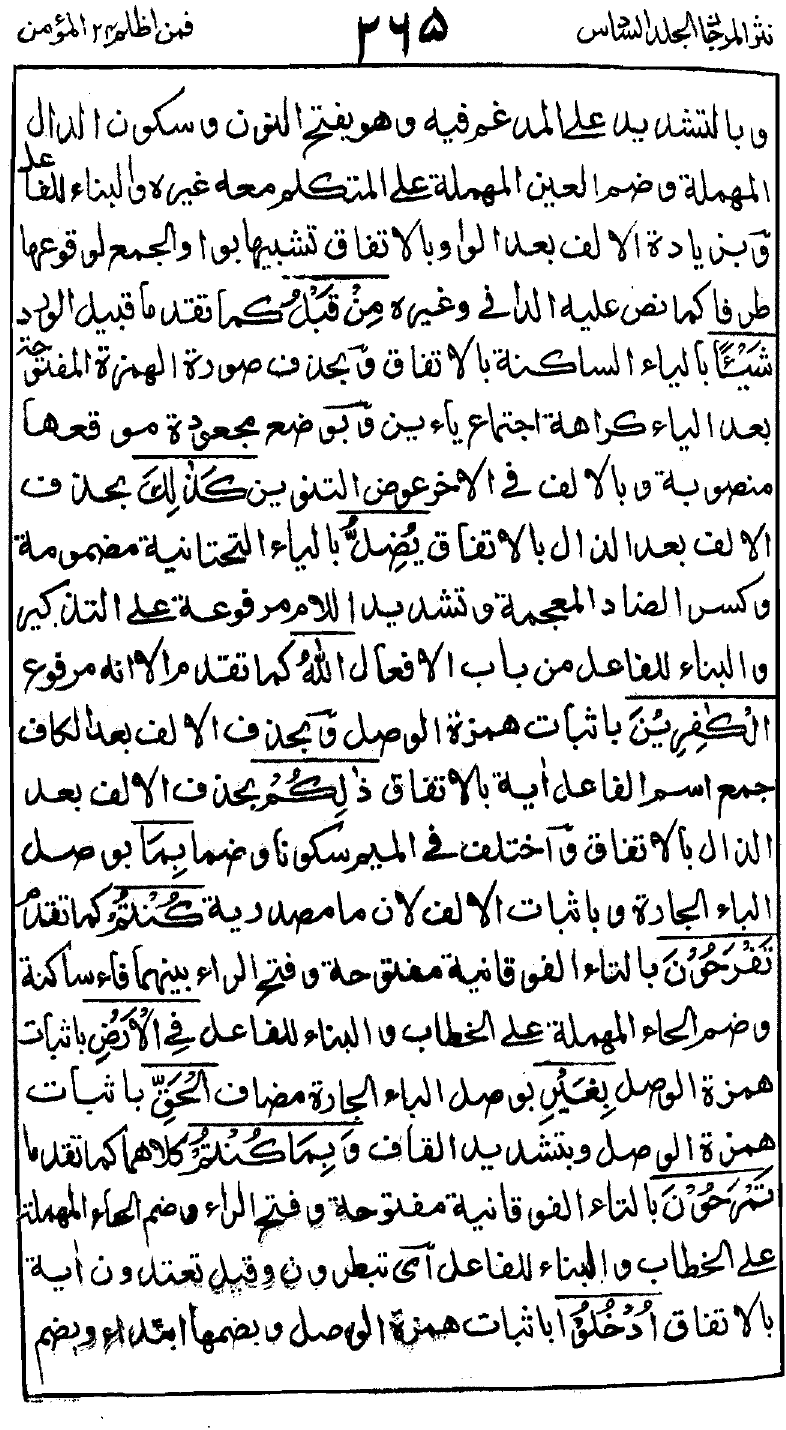 نثر المرجان الجلد السادس ٣٦٥ فمن اظلم ٢٤ المؤمن
وبالتشديد على المدغم فيه وهو بفتح النون وسكون الدال
المهملة وضم العين المهملة على المتكلم معه غيره والبناء للفاعل
وبزيادة الالف بعد الواو بالاتفاق تشبيها بواو الجمع لوقوعها
طرفا كما نص عليه الداني وغيره مِنْ قَبْلُ كما تقدما قبيل الورد
شَيْئًا بالياء الساكنة بالاتفاق وبحذف صورة الهمزة المفتوحة
بعد الياء كراهة اجتماع ياءين وبوضع مجعودة موقعها
منصوبة وبالالف في الاخر عوض التنوين كَذٰلِكَ بحذف
الالف بعد الذال بالاتفاق يُضِلُّ بالياء التحتانية مضمومة
وكسر الضاد المعجمة وتشديد اللام مرفوعة على التذكير
والبناء للفاعل من باب الافعال اللّٰهُ كما تقدم الا انه مرفوع
الْكٰفِرِيْنَ باثبات همزة الوصل وبحذف الالف بعد الكاف
جمع اسم الفاعل اٰية بالاتفاق ذٰلِكُمْ بحذف الالف بعد
الذال بالاتفاق واختلف في الميم سكونا وضما بِمَا بوصل
الباء الجارة وباثبات الالف لان ما مصدرية كُنْتُمْ كما تقدم
تَفْرَحُوْنَ بالتاء الفوقانية مفتوحة وفتح الراء بينهما فاء ساكنة
وضم الحاء المهملة على الخطاب والبناء للفاعل فِي الْاَرْضِ باثبات
همزة الوصل بِغَيْرِ بوصل الباء الجارة مضاف الْحَقِّ باثبات
همزة الوصل وبتشديد القاف وَبِمَا كُنْتُمْ كلاهما كما تقدما
تَمْرَحُوْنَ بالتاء الفوقانية مفتوحة وفتح الراء وضم الحاء المهملة
على الخطاب والبناء للفاعل اى تبطرون وقيل تعتدون اٰية
بالاتفاق اُدْخُلُوْا باثبات همزة الوصل وبضمها ابتداء وبضم